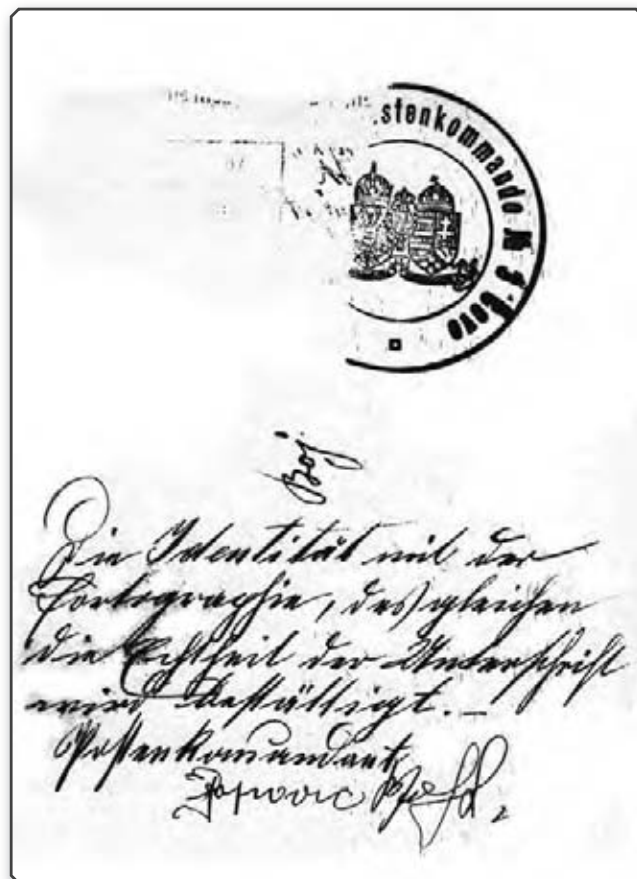 stenkommando № 9 Lovo
Boj
Die Identität mit der
Fortographie, des gleichen
die Echtheit der Unterschrift
wird bestättigt. —
Postenkomandant